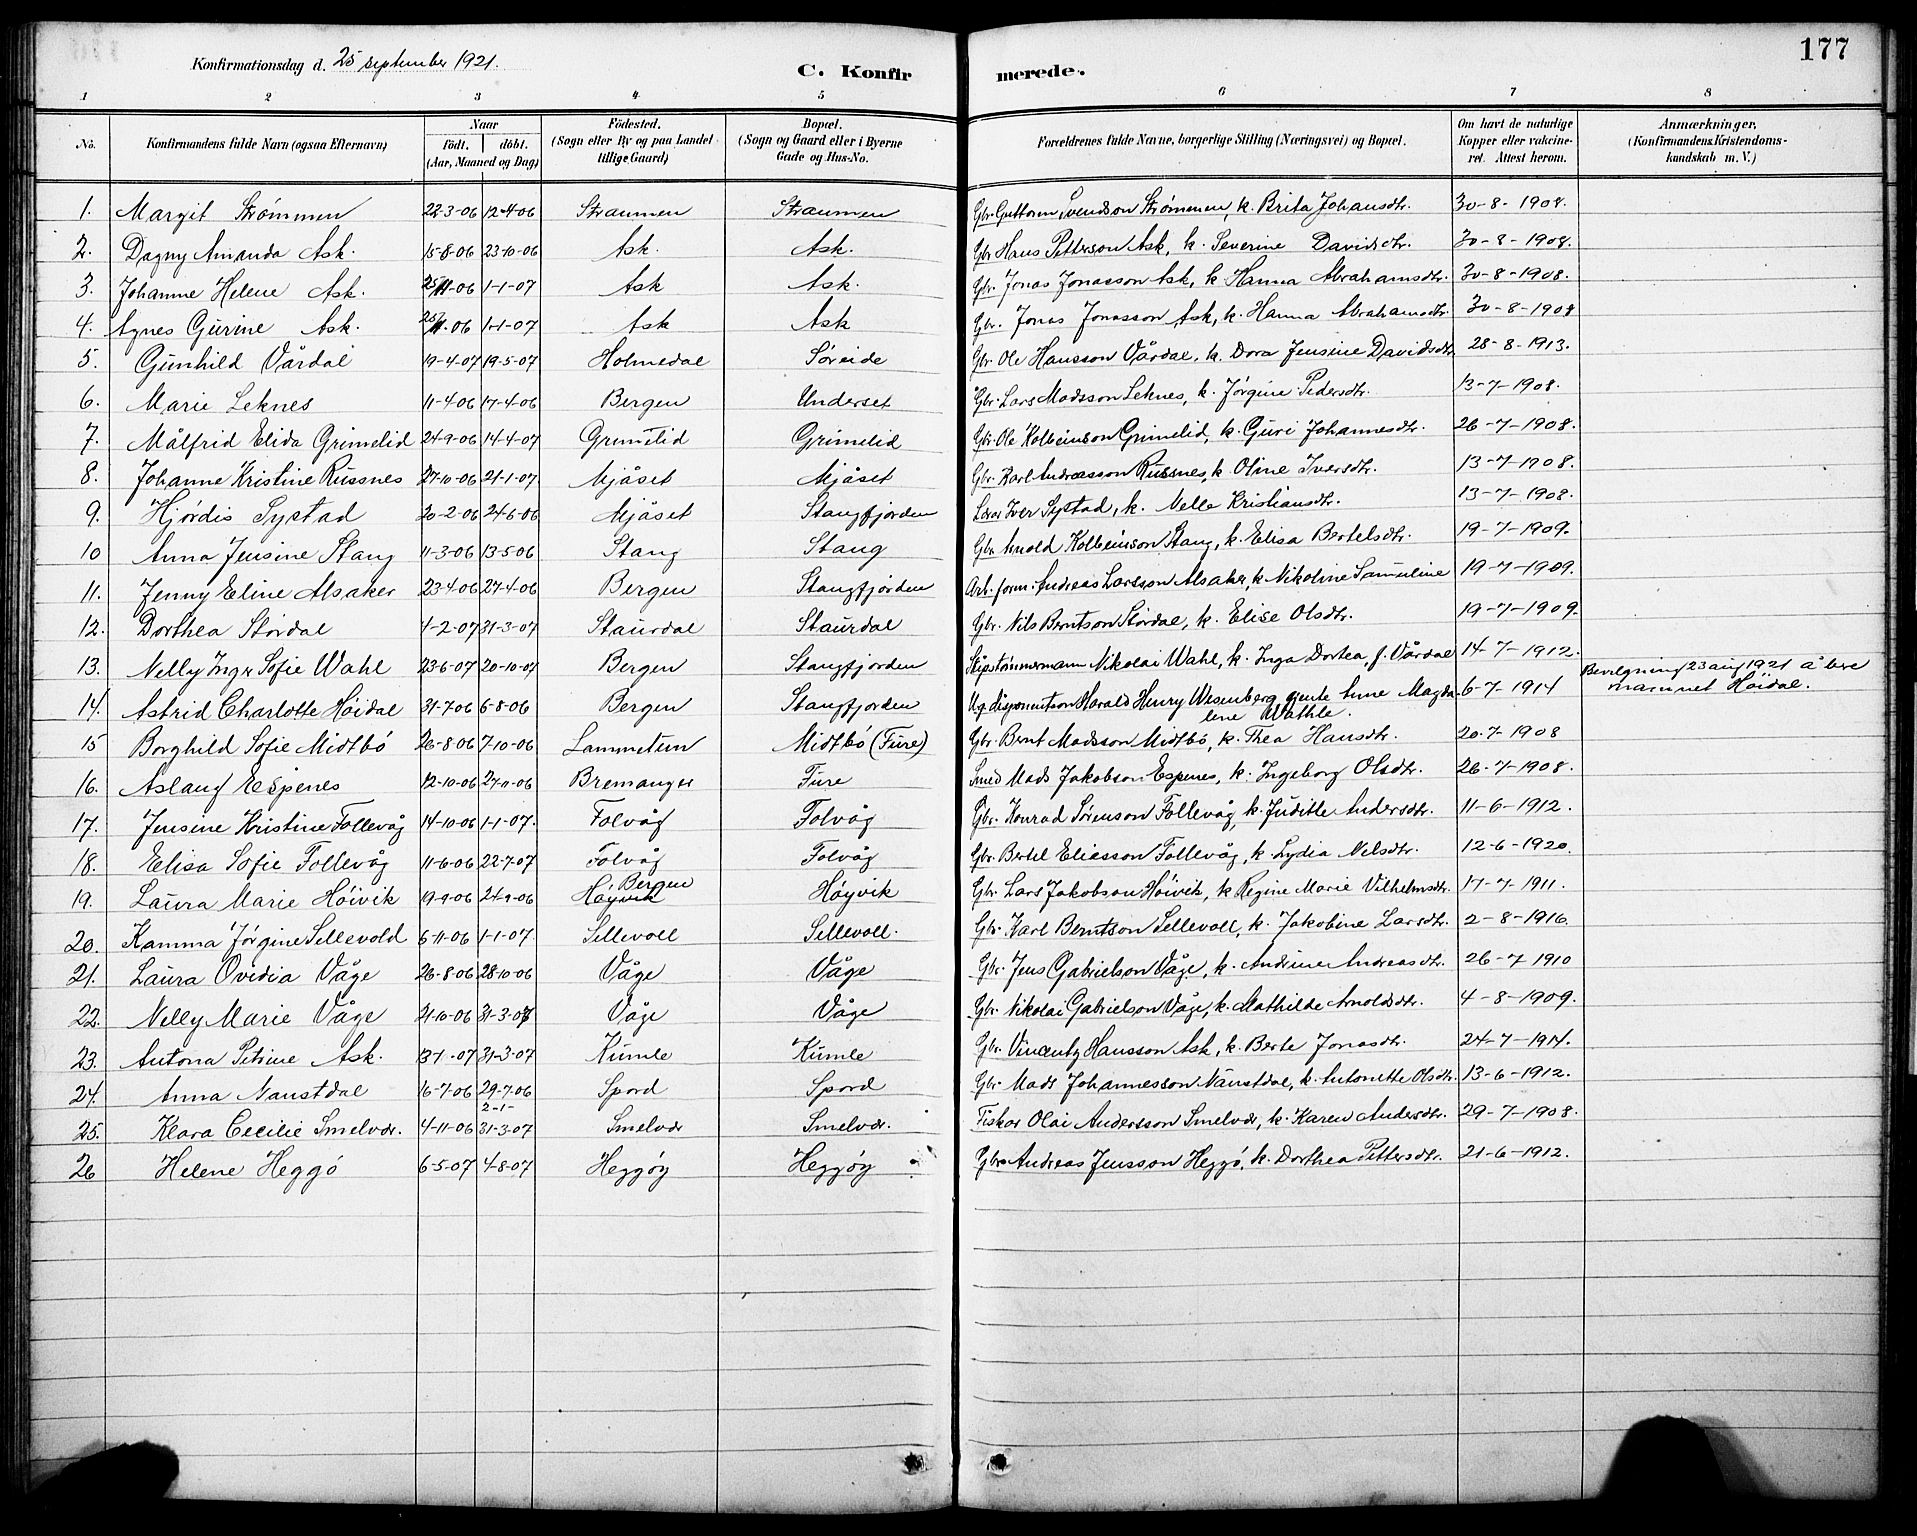 177
Konfirmationsdag d. 25 september 1921.
C. Konfirmerede.
1 2 3 4 5 6 7 8
No. Konfirmandens fulde Navn (ogsaa Efternavn) Naar födt. döbt. (Aar, Maaned og Dag) Födested. (Sogn eller By og paa Landet tillige Gaard) Bopæl. (Sogn og Gaard eller i Byerne Gade og Hus-No. Forældrenes fulde Navne, borgerlige Stilling (Næringsvei) og Bopæl. Om havt de naturlige Kopper eller vakcineret. Attest herom. Anmærkninger. (Konfirmandens Kristendomskundskab m. V.)
1. Margit Strømmen 22-3-06 12-4-06 Straumen Straumen Gbr. Guttorm Svendson Strømmen, k. Brita Johansdtr. 30-8-1908.
2. Dagny Amanda Ask. 15-8-06 23-10-06 Ask. Ask. Gbr. Hans Petterson Ask, k. Severine Davidsdtr. 30-8-1908.
3. Johanne Helene Ask. 25/11-06 1-1-07 Ask Ask. Gbr. Jonas Jonasson Ask, k Hanna Abrahamsdtr. 30-8-1908.
4. Agnes Gurine Ask. 25/11-06 1-1-07 Ask Ask Gbr. Jonas Jonasson Ask, k. Hanna Abrahamsdtr. 30-8-1908
5. Gunhild Vårdal 19-4-07 19-5-07 Holmedal Søreide Gbr. Ole Hansson Vårdal, k. Dora Jensine Davidsdtr. 28-8-1913.
6. Marie Leknes 11-4-06 17-4-06 Bergen Underset Gbr. Lars Madsson Leknes, k. Jørgine Pedersdtr. 13-7-1908.
7. Målfrid Elida Grimelid 24-9-06 14-4-07 Grimelid Grimelid Gbr. Ole Kolbeinson Grimelid, k. Guri Johannesdtr. 26-7-1908.
8. Johanne Kristine Russnes 27-10-06 21-1-07 Mjåset Mjåset Gbr. Karl Andreasson Russnes, k Oline Iversdtr. 13-7-1908.
9. Hjørdis Systad 20-2-06 24-6-06 Mjåset Stangfjorden Lærer Iver Systad, k. Nelle Kristiansdtr. 13-7-1908.
10 Anna Jensine Stang 11-3-06 13-5-06 Stang Stang Gbr. Arnold Kolbeinson Stang, k. Elisa Bertelsdtr. 19-7-1909.
11. Jenny Eline Alsaker 23-4-06 27-4-06 Bergen Stangfjorden Arb. form. Andreas Larsson Alsaker, k Nikoline Samueline 19-7-1909.
12. Dorthea Stórdal 4-2-07 31-3-07 Staurdal Staurdal Gbr. Nils Berntson Stórdal, k. Elise Olsdtr. 19-7-1909.
13. Nelly Inga Sofie Wahl 23-6-07 20-10-07 Bergen Stangfjorden Skipstømmermann Nikolai Wahl, k. Inga Dortea, f. Vårdal 14-7-1912.
14. Astrid Charlotte Höidal 31-7-06 6-8-06 Bergen Stangfjorden Harald Henry Wesenberg gjente Anne Magdalene Wathle. 6-7-1914 Bevilgning 23 aug 1921 å bere namnet Höidal.
15 Borghild Sofie Midtbó 26-8-06 7-10-06 Lammetun Midtbó (Fure) Gbr. Bernt Madsson Midtbó, k. Thea Hansdtr. 20-7-1908
16. Aslaug Espenes 12-10-06 24-11-06 Bremanger Fure Smed Mads Jakobson Espenes, k. Ingeborg Olsdtr. 26-7-1908.
17. Jensine Kristine Follevåg 14-10-06 1-1-07. Folvåg Folvåg Gbr. Konrad Sørenson Follevåg, k. Judithe Andersdtr. 11-6-1912.
18. Elisa Sofie Follevåg 11-6-06 22-7-07 Folvåg Folvåg Gbr. Bertel Eliasson Follevåg, k. Lydia Nilsdtr. 12-6-1920.
19. Laura Marie Hóivik 19-9-06 24-9-06 Bergen Hóyvik Hóyvik Gbr. Lars Jakobson Hóivik, k Regine Marie Vilhelmsdtr. 17-7-1911.
20. Kamma Jórgine Sellevold 6-11-06 1-1-07. Sellevoll Sellevoll. Gbr. Karl Berntson Sellevoll, k. Jakobine Larsdtr. 2-8-1916.
21. Laura Ovidia Våge 26-8-06 28-10-06 Våge Våge Gbr. Jens Gabrielson Våge, k. Andrine Andreasdtr. 26-7 1910
22. Nelly Marie Våge 21-10-06 31-3-07 Våge Våge Gbr. Nikolai Gabrielson Våge, k. Mathilde Arnoldsdtr. 4-8-1909.
23. Antona Petrine Ask. 13-1-07 31-3-07 Kumle Kumle Gbr. Vincentz Hansson Ask, k. Berte Jonasdtr. 24-7-1914.
24. Anna Naustdal 16-7-06 29-7-06 Spord Spord Gbr. Mads Johannesson Naustdal, k. Antonette Olsdtr. 13-6-1912.
25. Klara Cecilie Smelvær. 4-11-06 2-1- 31-3-07 Smelvær Smelvær. Fiskar Olai Andersson Smelvær, k. Karen Andersdtr. 29-7-1908.
26 Helene Heggó 6-5-07 4-8-07 Heggóy Heggóy Gbr. Andreas Jensson Heggó, k. Dorthea Pettersdtr. 21-6-1912.